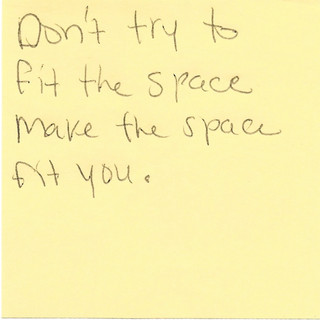 Don't try to
fit the space
make the space
fit you.